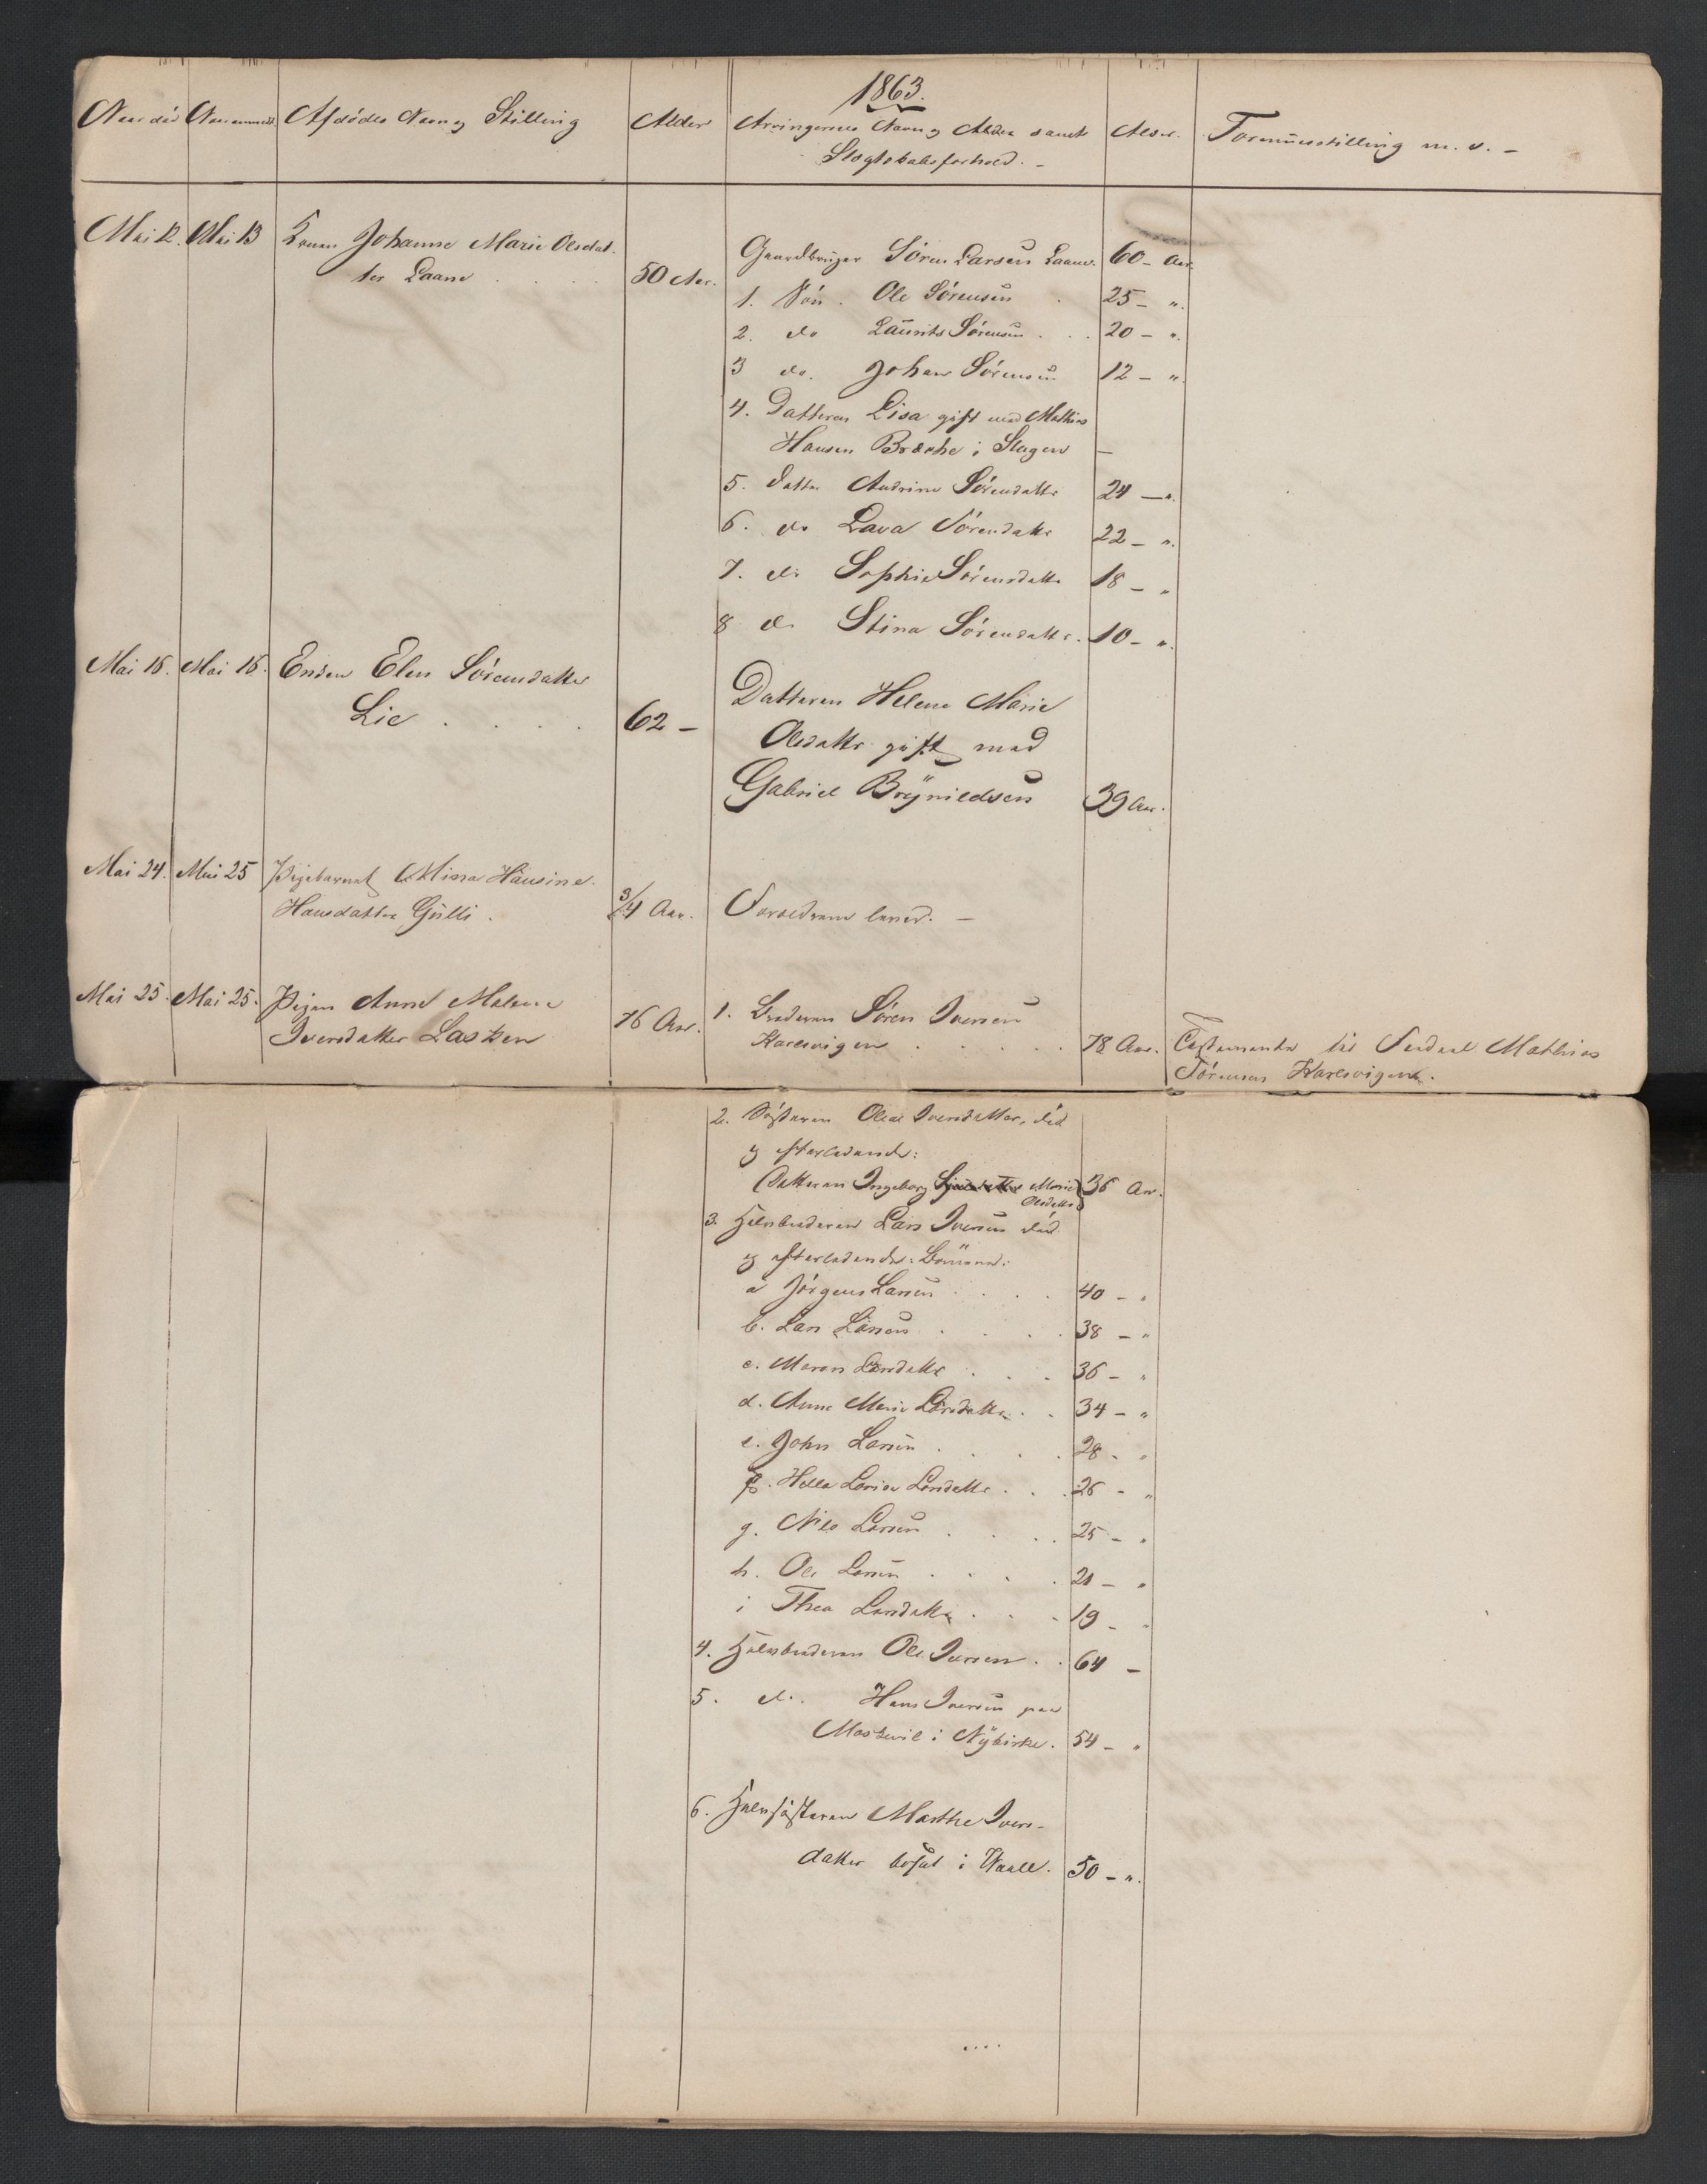 1863.
Naar død Naar anmeldt Afdødes Navn og Stilling Alder Arvingernes Navn og Alder samt Alder. Formuesstilling m. v. –
Slægtskabsforhold. –
Mai 12. Mai 13 Konen Johanne Marie Olsdat-
ter Laane 50 Aar. Gaardbruger Sören Larsen Laane. 60 – Aar.
1. Sön. Ole Sörensen 25 – ".
2. do Laurits Sörensen 20 – ".
3 do. Johan Sörensen 12 – ".
4. Datteren Lisa gift med Mathias
Hansen Bræche i Slagen –
5. Datter Andrine Sörensdatter 24 – ".
6. do Lava Sörensdatter 22 – ".
7. do Sophie Sörensdatter 18 – "
8 do Stina Sörensdatter. 10 – ".
Mai 16. Mai 16. Enken Elen Sörensdatter
Lie 62 – Datteren Helene Marie
Olsdatter gift med
Gabriel Brÿnildsen 39 Aar.
Mai 24. Mai 25 Pigebarnet Mina Hansine
Hansdatter Gulli. 3/4 Aar. Forældrene lever. –
Mai 25. Mai 25. Pigen Anne Malene
Iversdatter Lasken 76 Aar. 1. Broderen Sören Iversen
Karesvigen 78 Aar. Testamente til
Sörensen Karesvigen.
2. Søsteren Olea Iversdatter, död
og efterladende:
Datteren Ingeborg Marie 36 Aar.
Olsdatter
3. Halvbroderen Lars Iversen död
og efterladende: Börnene:
a Jörgen Larsen 40 – "
b. Lars Larsen 38 – "
c. Maren Larsdatter 36 – "
d. Anne Marie Larsdatter 34 – "
e. John Larsen 28 – "
f. Helle Larsdatter 26 – "
g. Nils Larsen 25 – "
h. Ole Larsen 21 – "
i Thea Larsdatter 19 – "
4. Halvbroderen Ole Iversen 64 –
5. do. Hans Iversen paa
i Nÿkirke. 54 – "
6. Halvsøsteren Marthe Ivers-
datter bosat i Vaale. 50 – ".